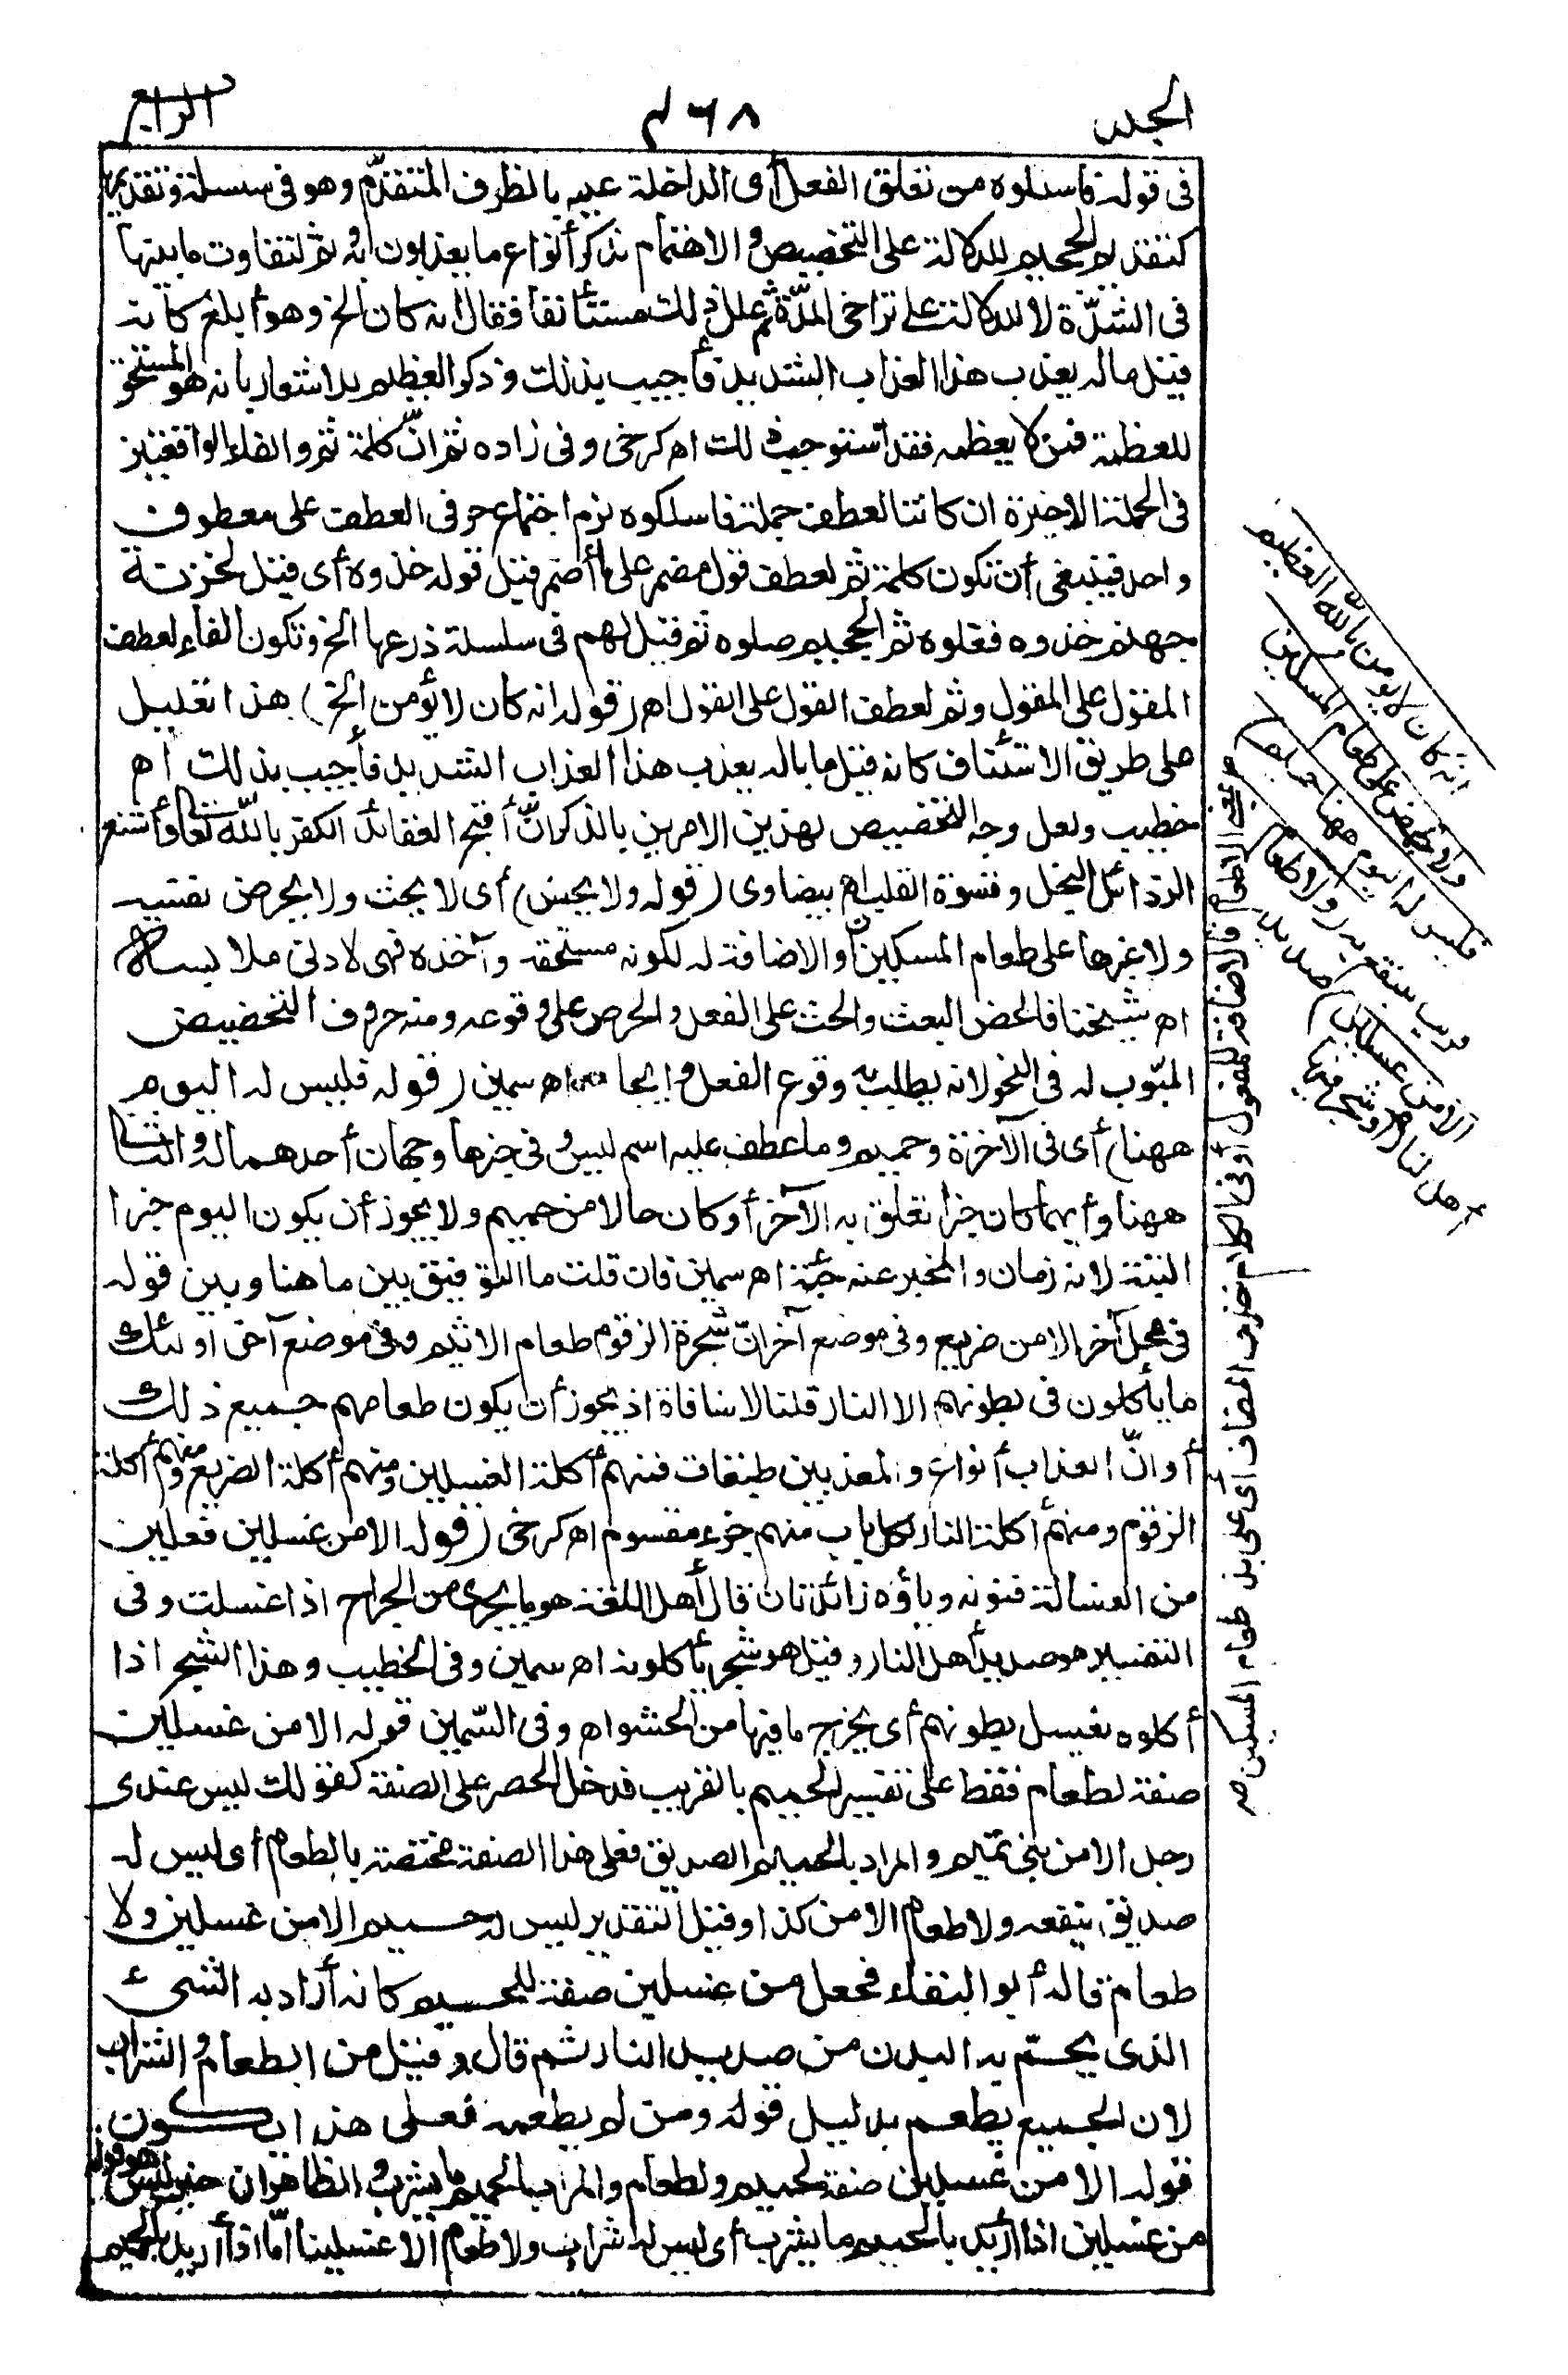 الجلد
٤٦٨
الرابع
فى قوله فاسلكوه من تعلق الفعل أى الداخلة عليه بالظرف المتقدّم وهو فى سلسلة وتقديمها
كتقديم الجحيم للدلالة على التخصيص والاهتمام بذكر أنواع ما يعذبون به وثم لتفاوت ما بينها
فى الشدّة لا للدلالة على تراخى المدّة ثم علل ذلك مستأنفا فقال انه كان الخ وهو أبلغ كانه
قيل ماله يعذب هذا العذاب الشديد فأجيب بذلك وذكر العظيم للاشعار بانه هو المستحق
للعظمة فمن لا يعظمه فقد استوجب ذلك اه كرخى وفى زاده ثم انّ كلمة ثم والفاء الواقعتين
فى الجملة الاخيرة ان كانتا لعطف جملة فاسلكوه لزم اجتماع حرفى العطف على معطوف
واحد فينبغى أن تكون كلمة ثم لعطف قول مضمر على ما أضمر قبل قوله خذوه أى قيل لخزنة
جهنم خذوه فغلوه ثم الجحيم صلوه ثم قيل لهم فى سلسلة ذرعها الخ وتكون الفاء لعطف
المقول على المقول وثم لعطف القول على القول اه (قوله انه كان لا يؤمن الخ) هذا تعليل
على طريق الاستئناف كانه قيل ما باله يعذب هذا العذاب الشديد فأجيب بذلك اه
خطيب ولعل وجه التخصيص لهذين الامرين بالذكر انّ أقبح العقائد الكفر بالله تعالى وأشنع
الرذائل البخل وقسوة القلب اه بيضاوى (قوله ولا يحض) أى لا يحث ولا يحرض نفسه
ولا غيرها على طعام المسكين والاضافة له لكونه مستحقه وآخذه فهى لادنى ملابسة
اه شيخنا فالحض البعث والحث على الفعل والحرص على وقوعه ومنه حروف التحضيض
المبوّب له فى النحو لانه يطلب به وقوع الفعل وايجاده اه سمين (قوله فليس له اليوم
ههنا) أى فى الآخرة وحميم وما عطف عليه اسم ليس وفى خبرها وجهان أحدهما له والثانى
ههنا وأيهما كان خبرا تعلق به الآخر أو كان حالا من حميم ولا يجوز أن يكون اليوم خبرا
البتة لانه زمان والمخبر عنه جثة اه سمين فان قلت ما التوفيق بين ما هنا وبين قوله
فى محل آخر الا من ضريع وفى موضع آخر انّ شجرة الزقوم طعام الاثيم وفى موضع آخر اولئك
ما يأكلون فى بطونهم الا النار قلنا لا منافاة اذ يجوز أن يكون طعامهم جميع ذلك
أو انّ العذاب أنواع والمعذبين طبقات فمنهم أكلة الغسلين ومنهم أكلة الضريع ومنهم أكلة
الزقوم ومنهم أكلة النار لكل باب منهم جزء مقسوم اه كرخى (قوله الا من غسلين) فعلين
من الغسالة فنونه وياؤه زائدتان قال أهل اللغة هو ما يجرى من الجراح اذا غسلت وفى
التفسير هو صديد أهل النار وقيل هو شجر يأكلونه اه سمين وفى الخطيب وهذا الشجر اذا
أكلوه يغسل بطونهم أى يخرج ما فيها من الحشو اه وفى السمين قوله الا من غسلين
صفة لطعام فقط على تفسير الحميم بالقريب فدخل الحصر على الصفة كقولك ليس عندى
رجل الا من بنى تميم والمراد بالحميم الصديق فعلى هذا الصفة مختصة بالطعام أى ليس له
صديق ينفعه ولا طعام الا من كذا وقيل التقدير ليس له حميم الا من غسلين ولا
طعام قاله أبو البقاء فجعل من غسلين صفة للحميم كانه أراد به الشىء
الذى يحمّ به البدن من صديد النار ثم قال وقيل من الطعام والشراب
لان الجميع يطعم بدليل قوله ومن لم يطعمه فعلى هذا يكون
قوله الا من غسلين صفة لحميم ولطعام والمراد بالحميم ما يشرب والظاهر ان خبر ليس هو قوله
من غسلين اذا أريد بالحميم ما يشرب أى ليس له شراب ولا طعام الا غسلينا أمّا اذا أريد بالحميم
انه كان لا يؤمن بالله العظيم
ولا يحض على طعام المسكين
فليس له اليوم ههنا حميم)
قريب ينتفع به (ولا طعام
الا من غسلين) صديد
أهل النار أو شجر فيها
والاضافة للمفعول أو فى الكلام حذف المضاف أى على بذل طعام المسكين